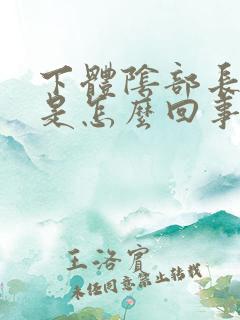 下體陰部長
是怎麼回事
王洛賓
未經同意禁止轉載